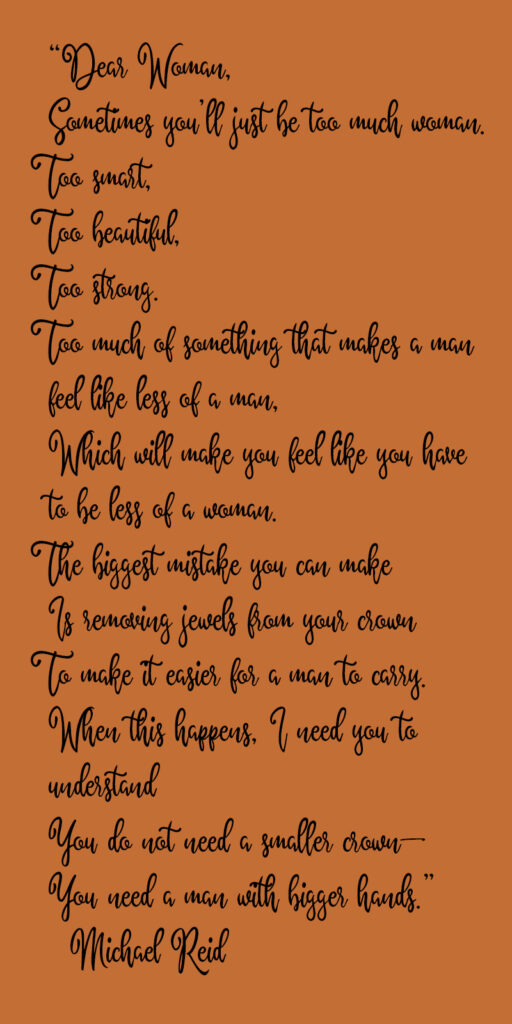 “Dear Woman,
Sometimes you’ll just be too much woman.
Too smart,
Too beautiful,
Too strong.
Too much of something that makes a man
feel like less of a man,
Which will make you feel like you have
to be less of a woman.
The biggest mistake you can make
Is removing jewels from your crown
To make it easier for a man to carry.
When this happens, I need you to
understand
You do not need a smaller crown—
You need a man with bigger hands.”
Michael Reid